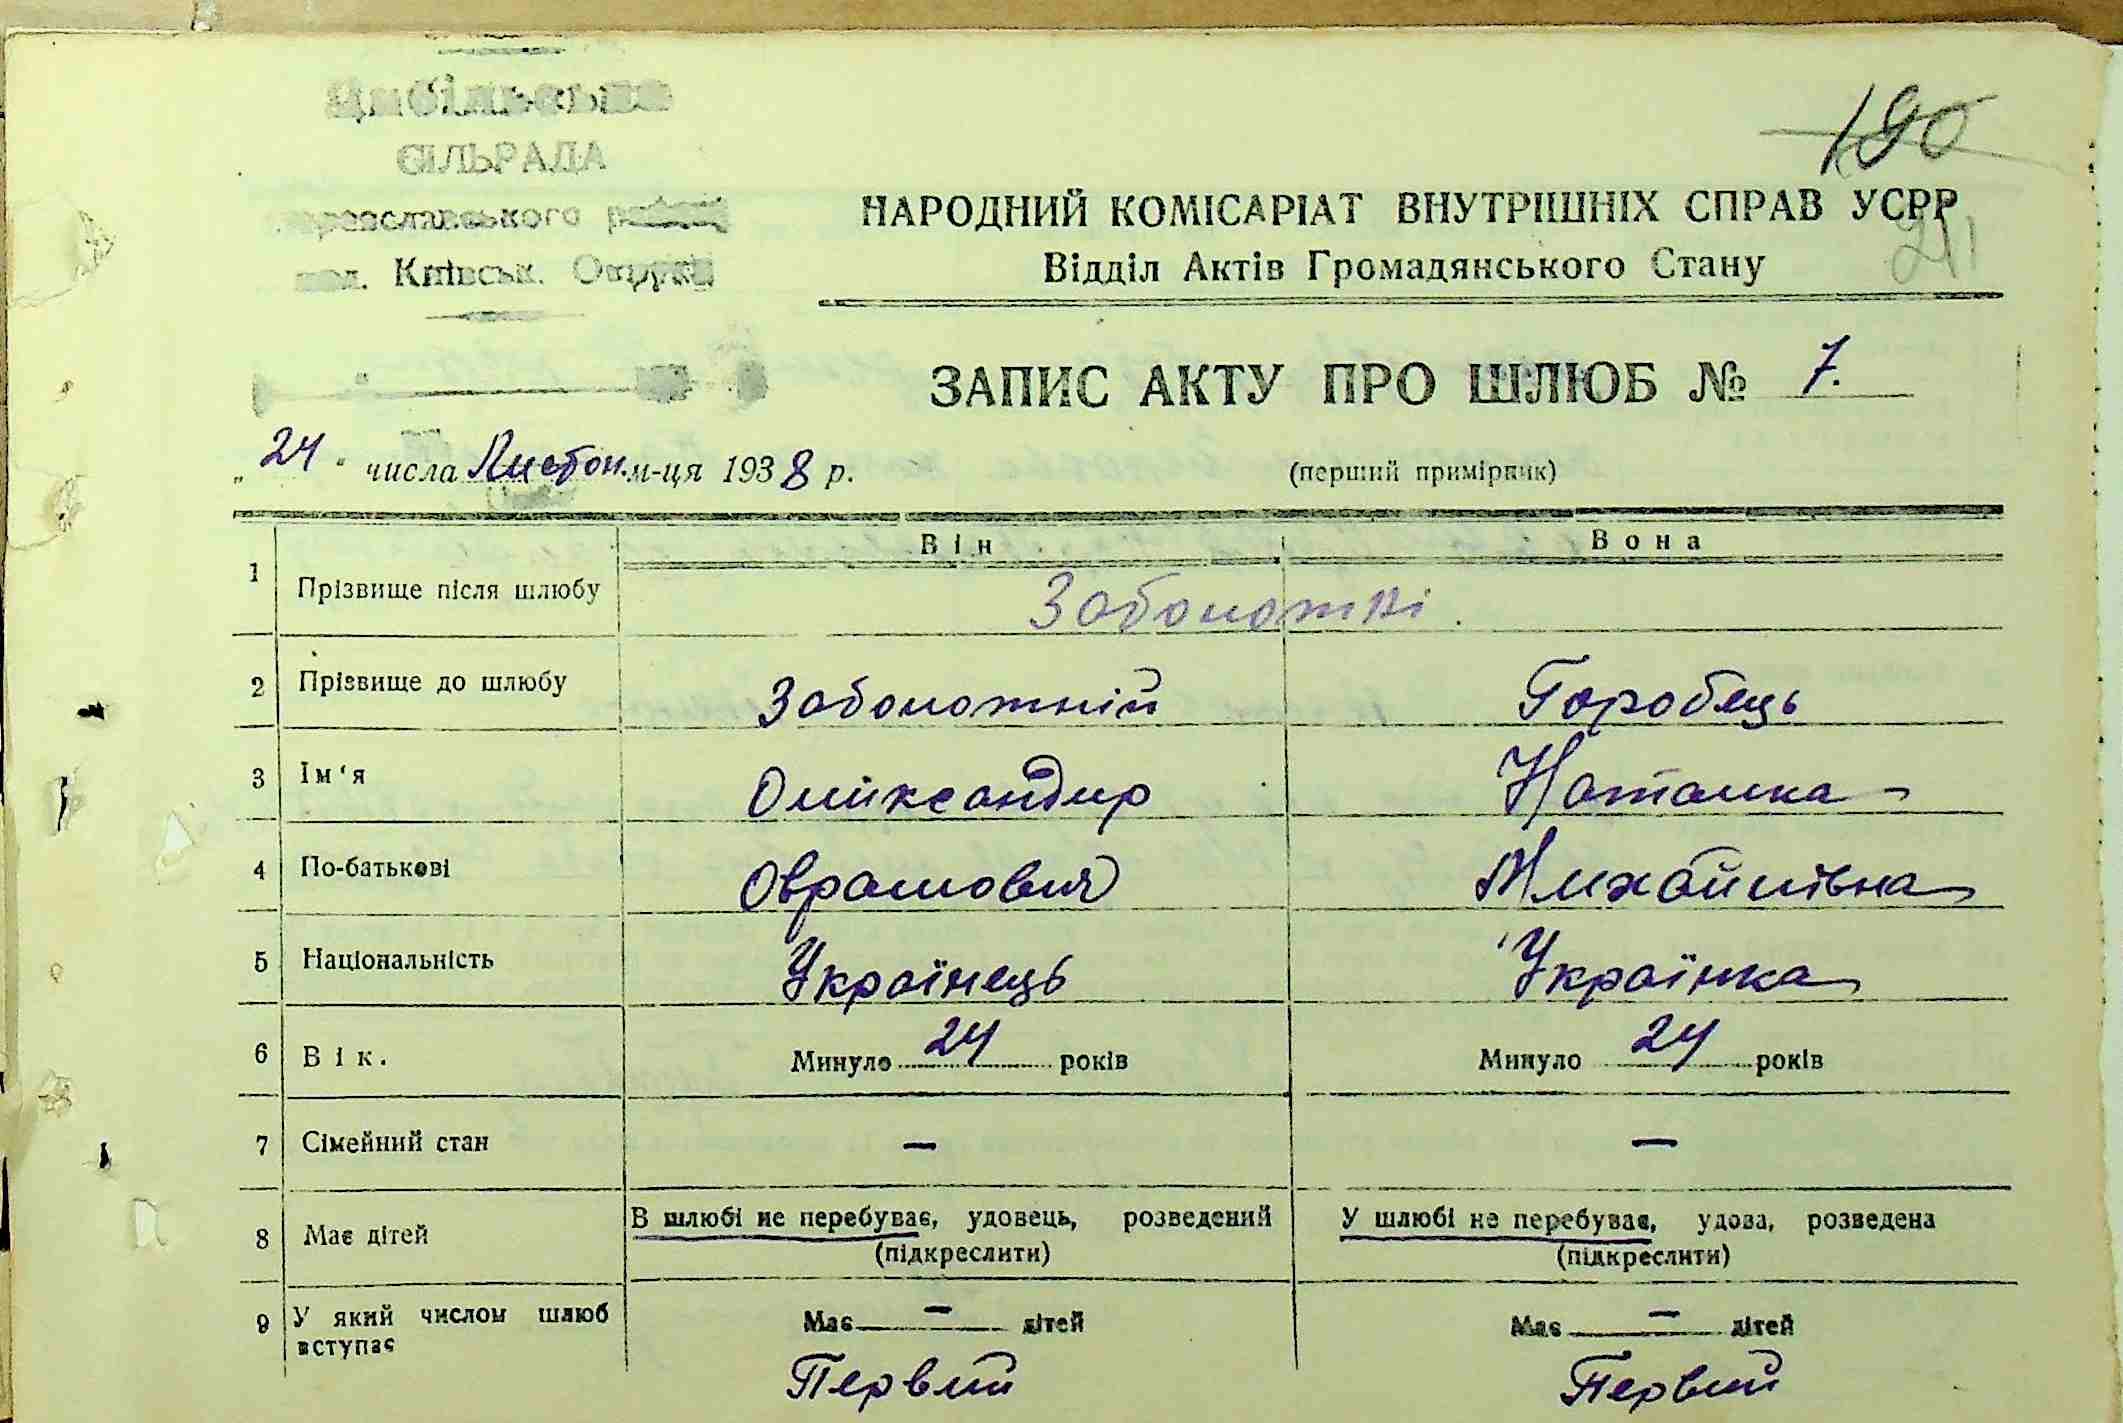 Цибільська
СІЛЬРАДА
Київськ. Округи
190
НАРОДНИЙ КОМІСАРІАТ ВНУТРІШНІХ СПРАВ УСРР
Відділ Актів Громадянського Стану
ЗАПИС АКТУ ПРО ШЛЮБ № 7.
„24" числа Листоп. м-ця 1938 р.
(перший примірник)
Він Вона
1 Прізвище після шлюбу Заболожні.
2 Прізвище до шлюбу Заболожній Горобець
3 Ім'я Олийксандир Наталка
4 По-батькові Оврамович Михайлівна
5 Національність Українець Українка
6 Вік. Минуло 24 років Минуло 24 років
7 Сімейний стан — —
8 Має дітей В шлюбі не перебуває, удовець, розведений У шлюбі не перебуває, удова, розведена
(підкреслити) (підкреслити)
9 У який числом шлюб Має — дітей Має — дітей
вступає
Первий Первий